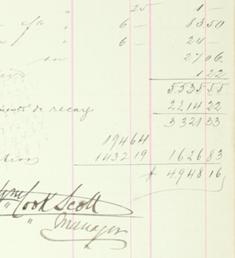 " 25 1 —
" 6 — 85 50
" 6 — 24 —
27 06
1 22
5535 55
de recarg 2214 22
3321 33
194 64
1432 19 1626 83
$ 4948 16
Cook Scott
" Manager